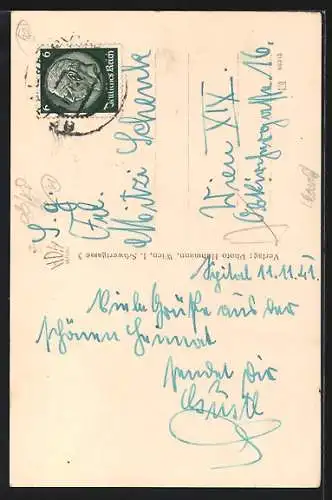 6 Deutsches Reich 6
S. g.
Frl.
Mitzi Schenk
Wien XIX.
16
Verlag: Photo Hohmann, Wien, I., Schwertgasse 3
11.11.41.
Viele Grüße aus der
schönen Heimat
sendet dir
Gustl